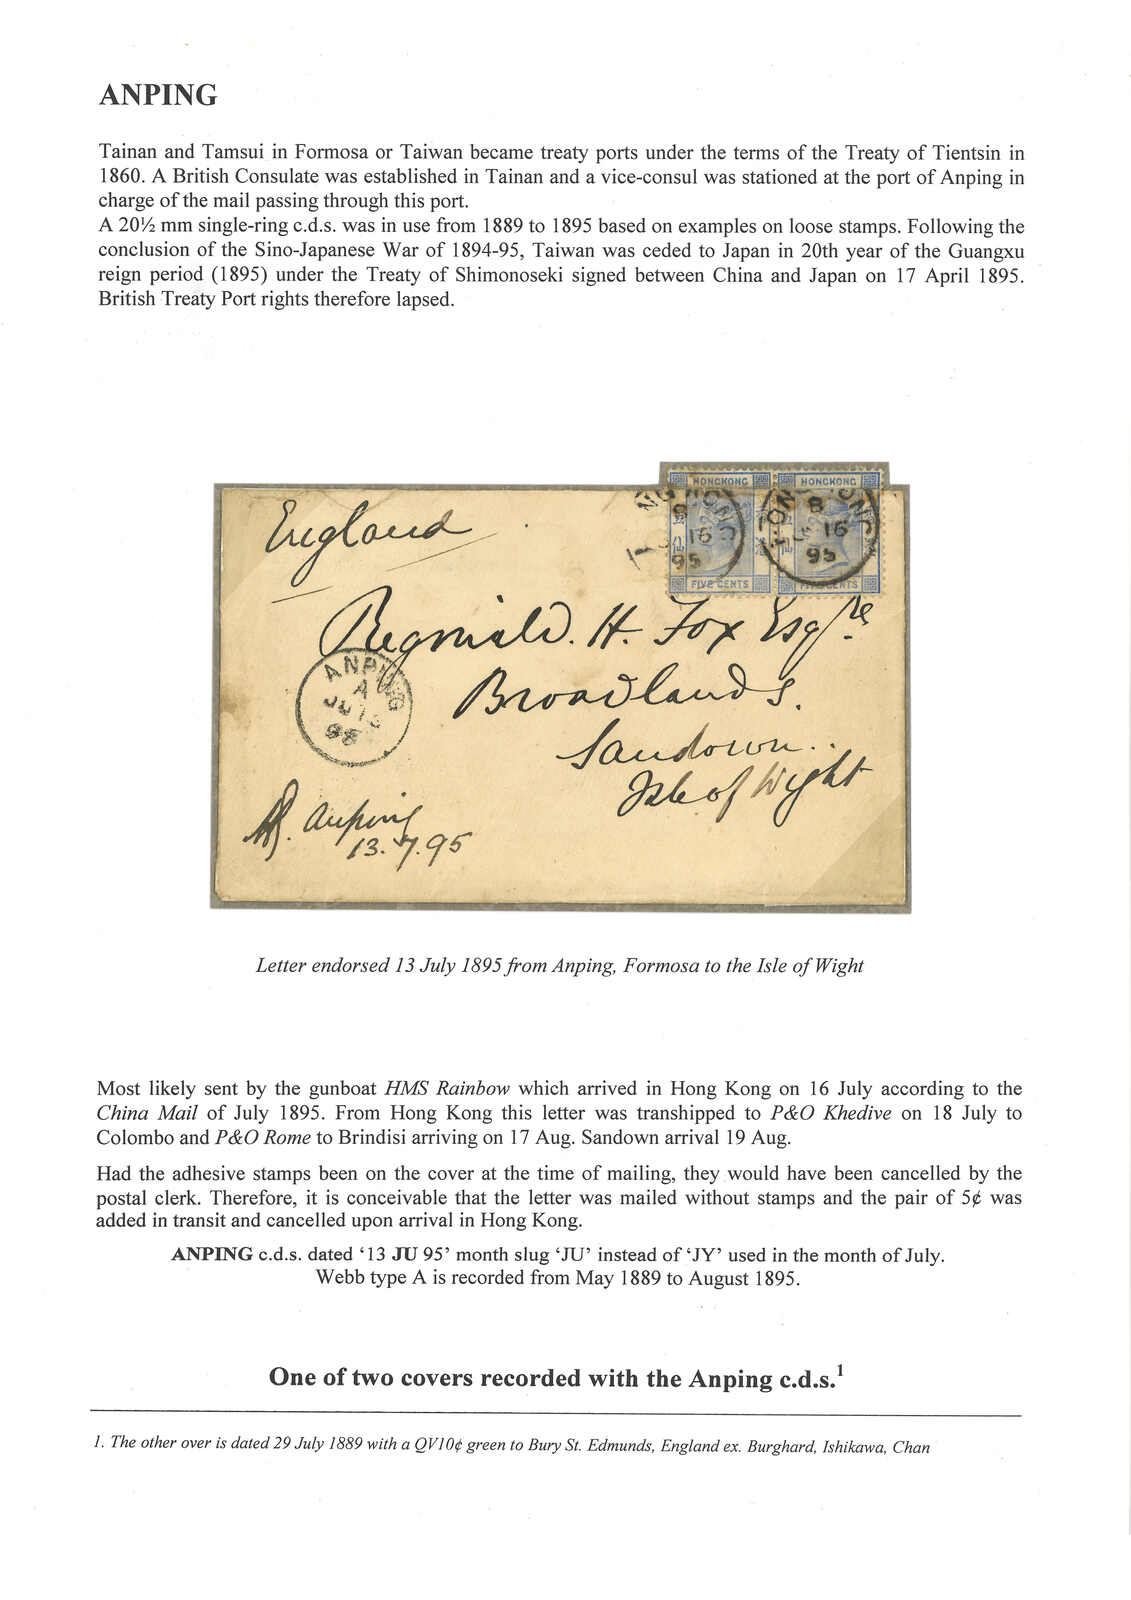 ANPING
Tainan and Tamsui in Formosa or Taiwan became treaty ports under the terms of the Treaty of Tientsin in
1860. A British Consulate was established in Tainan and a vice-consul was stationed at the port of Anping in
charge of the mail passing through this port.
A 20½ mm single-ring c.d.s. was in use from 1889 to 1895 based on examples on loose stamps. Following the
conclusion of the Sino-Japanese War of 1894-95, Taiwan was ceded to Japan in 20th year of the Guangxu
reign period (1895) under the Treaty of Shimonoseki signed between China and Japan on 17 April 1895.
British Treaty Port rights therefore lapsed.
HONGKONG HONGKONG
8 8
16 16
95 95
FIVE CENTS FIVE CENTS
England
Reginald. H. Fox Esqre
Broadlands.
Sandown.
Isle of Wight
ANPING
A
JU 13
95
Anping
13.7.95
Letter endorsed 13 July 1895 from Anping, Formosa to the Isle of Wight
Most likely sent by the gunboat HMS Rainbow which arrived in Hong Kong on 16 July according to the
China Mail of July 1895. From Hong Kong this letter was transhipped to P&O Khedive on 18 July to
Colombo and P&O Rome to Brindisi arriving on 17 Aug. Sandown arrival 19 Aug.
Had the adhesive stamps been on the cover at the time of mailing, they would have been cancelled by the
postal clerk. Therefore, it is conceivable that the letter was mailed without stamps and the pair of 5¢ was
added in transit and cancelled upon arrival in Hong Kong.
ANPING c.d.s. dated ‘13 JU 95’ month slug ‘JU’ instead of ‘JY’ used in the month of July.
Webb type A is recorded from May 1889 to August 1895.
One of two covers recorded with the Anping c.d.s.1
1. The other over is dated 29 July 1889 with a QV10¢ green to Bury St. Edmunds, England ex. Burghard, Ishikawa, Chan